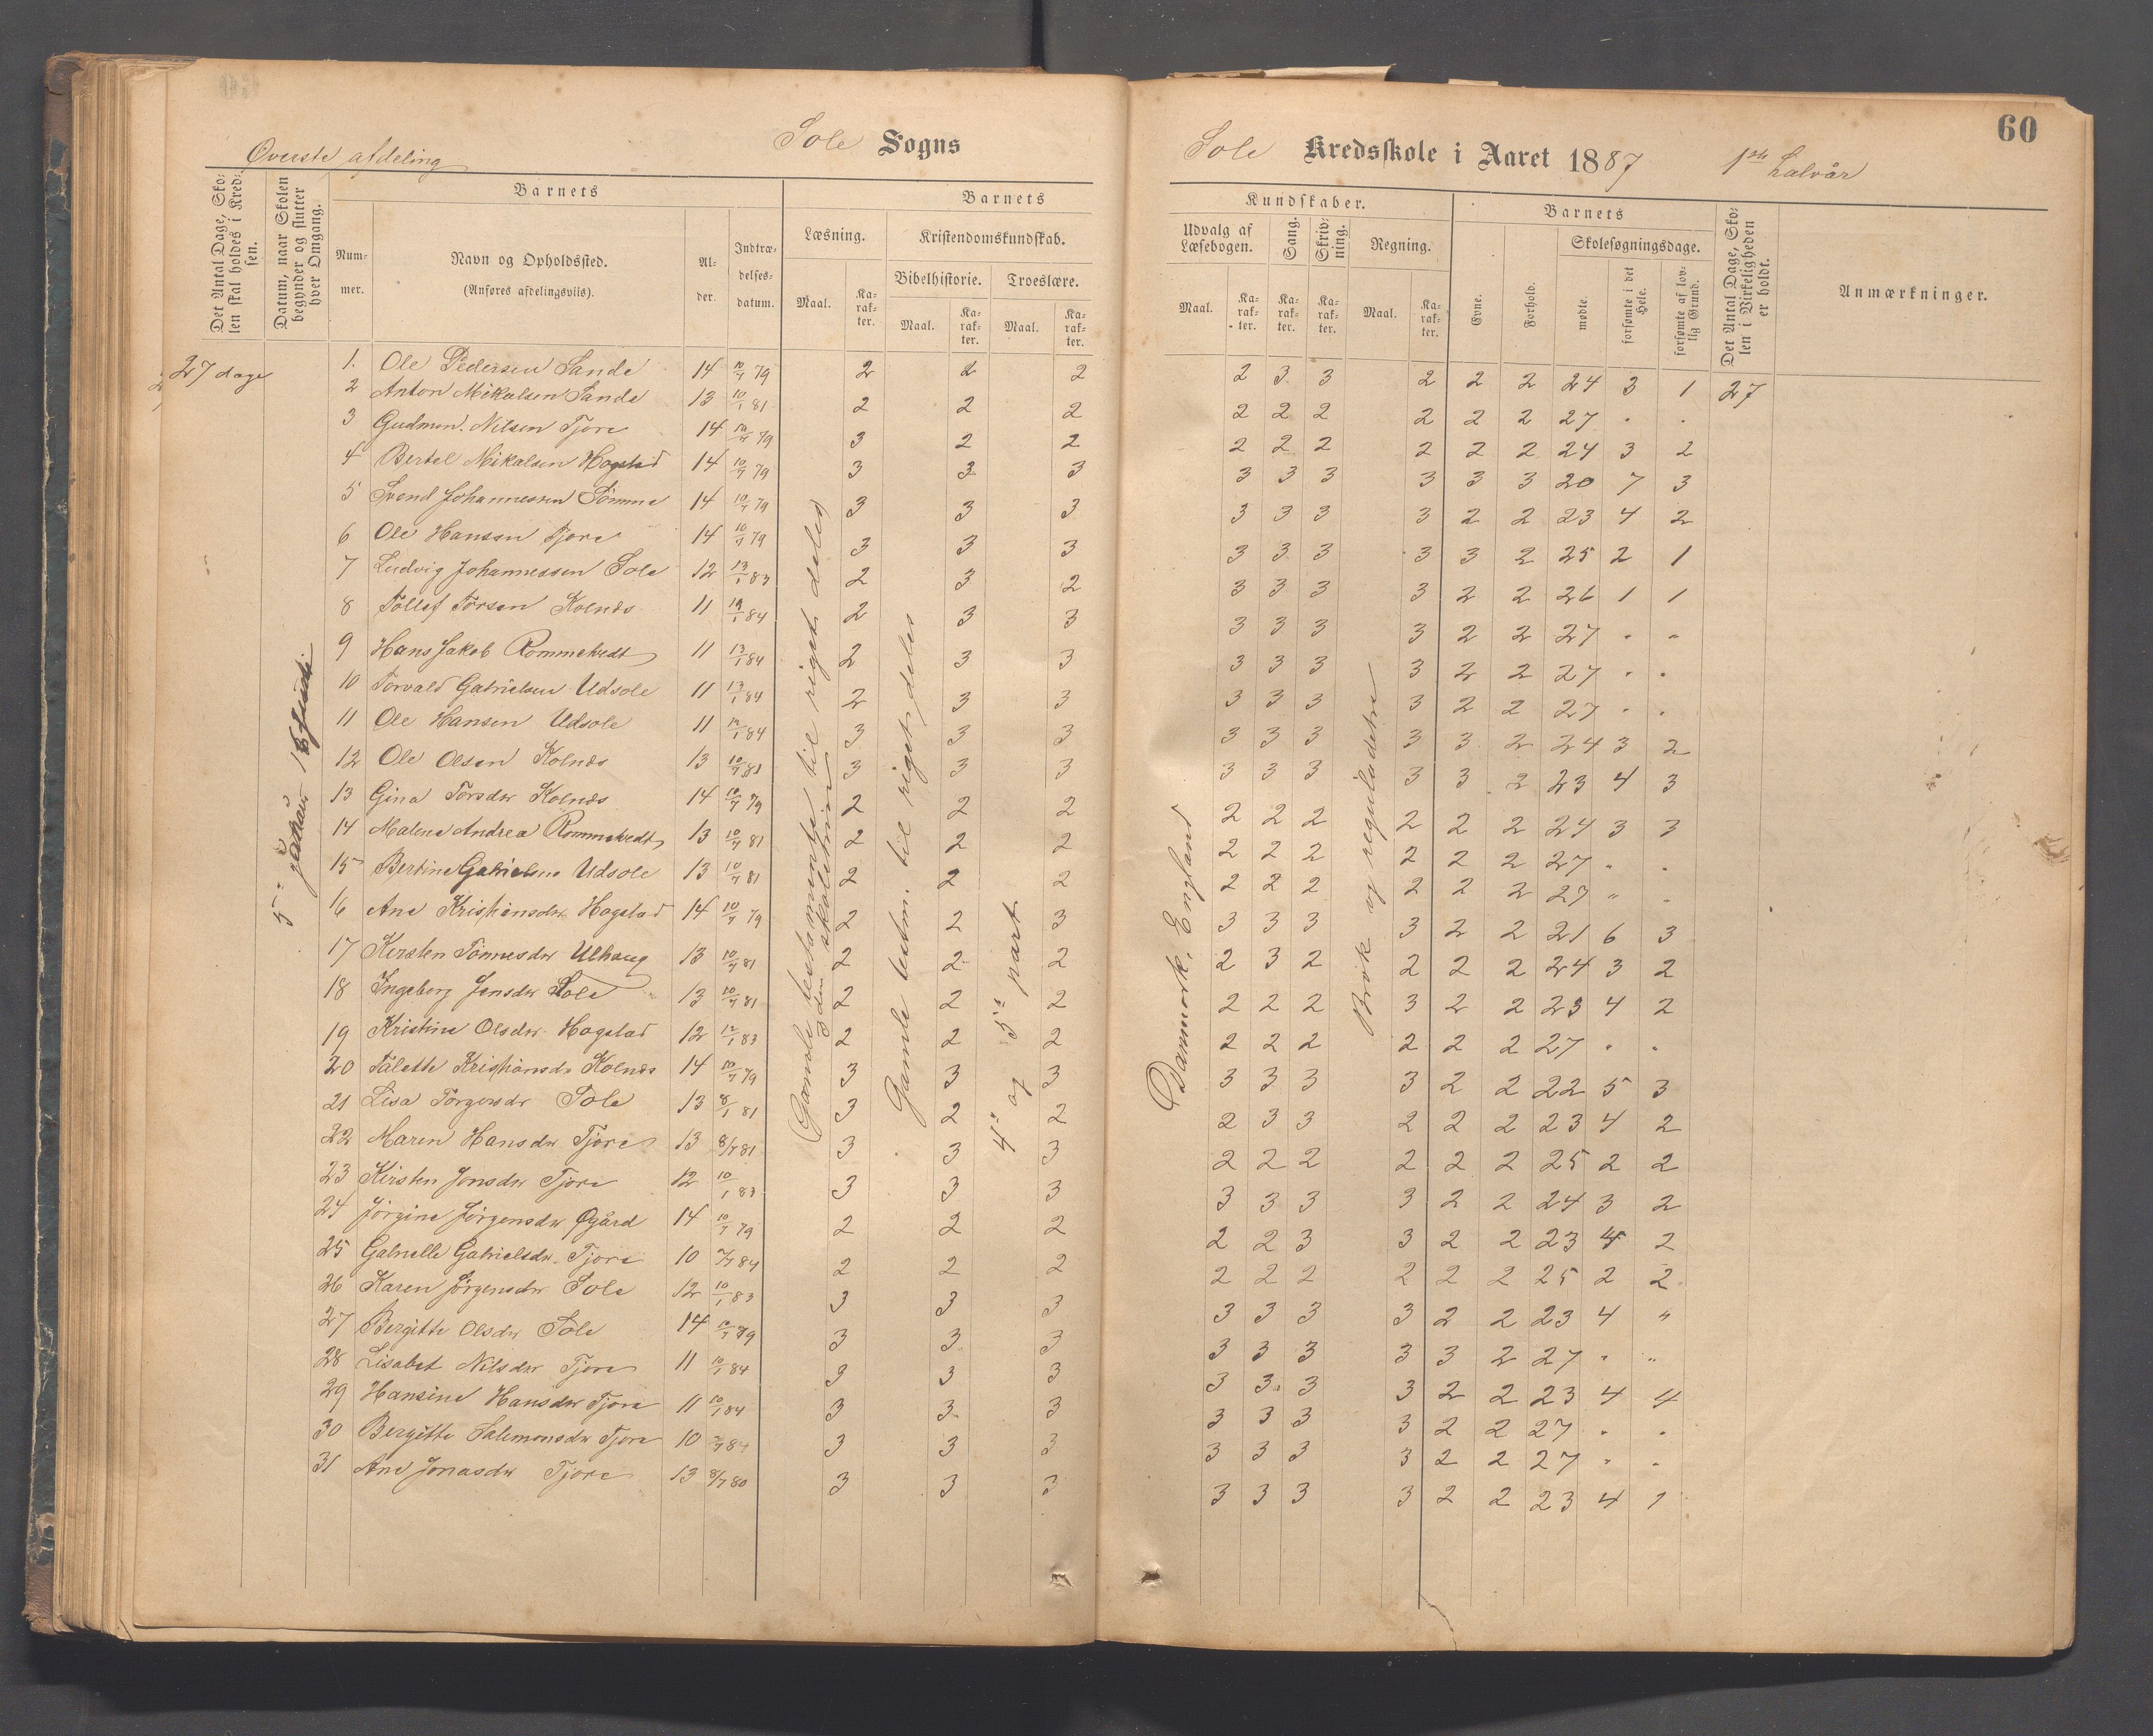 60
Sole Sogns
Sole Kredsskole i Aaret 1887 1ste halvår
Øverste afdeling
Det Antal Dage, Skolen skal holdes i Kredsen.
Datum, naar Skolen begynder og slutter hver Omgang.
Barnets
Nummer.
Navn og Opholdssted.
(Anføres afdelingsviis).
Alder.
Indtrædelsesdatum.
Barnets
Læsning.
Maal.
Karakter.
Kristendomskundskab.
Bibelhistorie.
Maal.
Karakter.
Troeslære.
Maal.
Karakter.
Kundskaber.
Udvalg af Læsebogen.
Maal.
Karakter.
Sang.
Karakter.
Skrivning.
Karakter.
Regning.
Maal.
Karakter.
Barnets
Evne.
Forhold.
Skolesøgningsdage.
mødte.
forsømte i det Hele.
forsømte af lovlig Grund.
Det Antal Dage, Skolen i Virkeligheden er holdt.
Anmærkninger.
27 dage
1. Ole Pedersen Sande 14 10/7 79 2 2 2 2 3 3 2 2 2 24 3 1 27
2 Anton Mikalsen Sande 13 10/1 81 2 2 2 2 2 2 2 2 2 27 " "
3 Gudmon. Nilsen Tjore 14 10/7 79 3 2 2 2 2 2 2 2 2 24 3 2
4 Bertel Mikalsen Hogstad 14 10/7 79 3 3 3 3 3 3 3 3 3 20 7 3
5 Svend Johannessen Sømme 14 10/7 79 3 3 3 3 3 3 3 2 2 23 4 2
6 Ole Hansen Tjore 14 10/7 79 3 3 3 3 3 3 3 3 2 25 2 1
7 Ludvig Johannessen Sole 12 13/1 83 2 3 2 3 3 3 3 2 2 26 1 1
8 Tollef Torsen Kolnes 11 /1 84 2 3 3 3 3 3 3 2 2 27 " "
9 Hans Jakob Rommetvedt 11 13/1 84 2 3 3 3 3 3 3 2 2 27 " "
10 Torvald Gabrielsen Udsole 11 13/1 84 2 3 3 3 3 3 3 2 2 27 " "
11 Ole Hansen Udsole 11 /1 84 3 3 3 3 3 3 3 3 2 24 3 2
12 Ole Olsen Kolnes 13 10/7 81 3 3 3 3 3 3 3 3 2 23 4 3
13 Gina Torsdtr Kolnes 14 10/7 79 2 2 2 2 2 2 2 2 2 24 3 3
14 Malene Andrea Rommetvedt 13 10/7 81 2 2 2 2 2 2 2 2 2 27 " "
15 Bertine Gabrielsne Udsole 13 10/7 81 2 2 2 2 2 2 2 2 2 27 " "
16 Ane Kristiansdtr Hogstad 14 10/7 79 2 2 3 3 3 3 3 2 2 21 6 3
17 Kersten Tønnesdtr Ulhaug 13 10/7 81 2 2 2 2 3 2 2 2 2 24 3 2
18 Ingeborg Jensdtr Sole 13 10/7 81 2 2 2 2 2 2 3 2 2 23 4 2
19 Kristine Olsdtr Hogstad 12 12/1 83 2 2 2 2 2 2 2 2 2 27 " "
20 Tålette Kristiansdtr Kolnes 14 10/7 79 3 3 3 3 3 3 3 2 2 22 5 3
21 Lisa Torgersdtr Sole 13 8/1 81 3 2 2 2 3 3 2 2 2 23 4 2
22 Maren Hansdtr Tjore 13 8/7 81 3 3 3 2 2 2 2 2 2 25 2 2
23 Kirsten Jonsdtr Tjore 12 10/1 83 3 3 3 3 3 3 3 2 2 24 3 2
24 Jørgine Jørgensdtr Øgård 14 10/7 79 2 2 2 2 2 3 3 2 2 23 4 2
25 Gabrielle Gabrielsdtr. Tjore 10 /7 84 2 2 2 2 2 2 2 2 2 25 2 2
26 Karen Jørgensdtr Sole 12 10/1 83 3 3 3 3 3 3 3 2 2 23 4 "
27 Bergitte Olsdtr Sole 14 10/7 79 3 3 3 3 3 3 3 3 2 27 " "
28 Lisabet Nilsdtr Tjore 11 10/1 84 3 3 3 3 3 3 3 2 2 23 4 4
29 Hansine Hansdtr Tjore 11 10/1 84 3 3 3 3 3 3 3 2 2 27 " "
30 Bergitte Salemonsdtr Tjore 10 /7 84 3 3 3 3 3 3 3 2 2 27 " "
31 Ane Jonasdtr Tjore 13 8/7 80 3 3 3 3 3 3 3 2 2 23 4 1
5te januar 16 juni
Gamle testamente til rigets deling
Gamle testm. til rigets deles
4de og 5te part
Danmark, England
Brøk og reguladetri